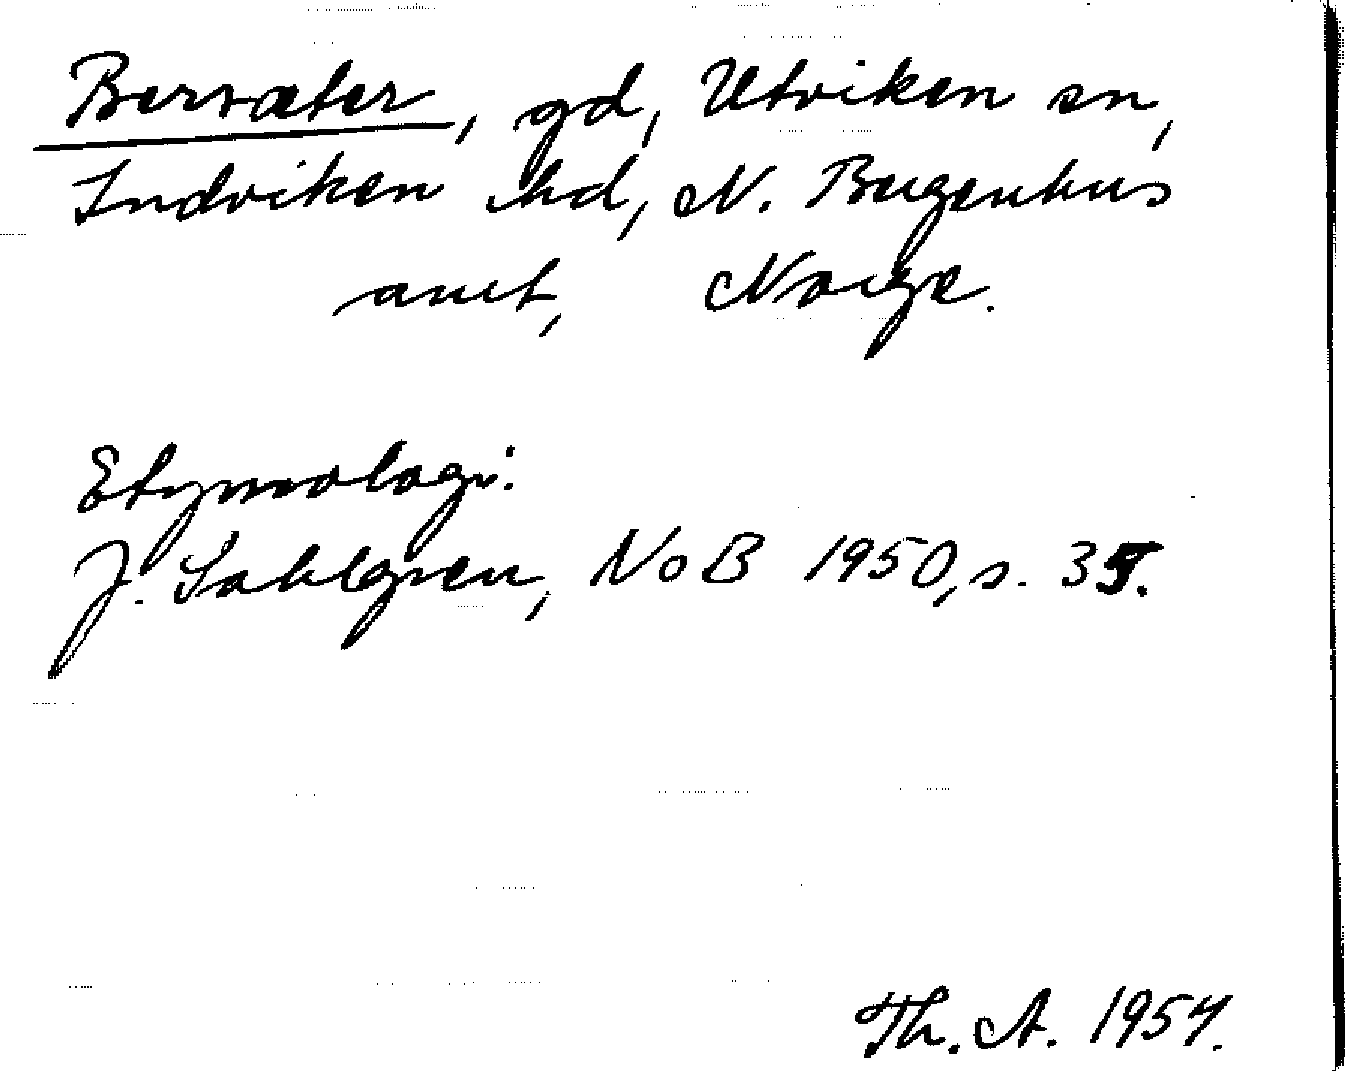 Bervæter, gd, Utviken sn,
Indviken hd, N. Bergenhus
amt, Norge.
Etymologi:
J. Sahlgren, NoB 1950, s. 35.
Th. A. 1954.